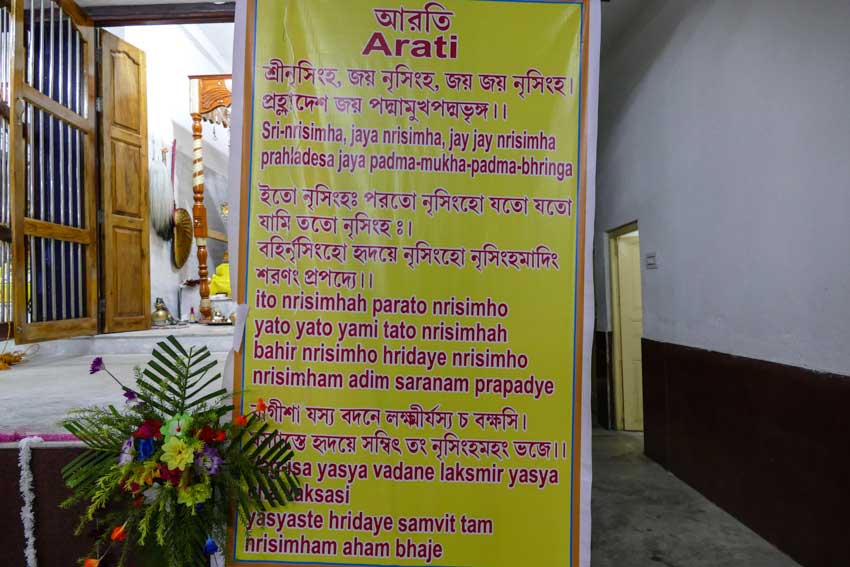 আরতি
Arati
শ্রীনৃসিংহ, জয় নৃসিংহ, জয় জয় নৃসিংহ।
প্রহ্লাদেশ জয় পদ্মামুখপদ্মভৃঙ্গ।।
Sri-nrisimha, jaya nrisimha, jay jay nrisimha
prahladesa jaya padma-mukha-padma-bhringa
ইতো নৃসিংহঃ পরতো নৃসিংহো যতো যতো
যামি ততো নৃসিংহ ঃ।
বহির্নৃসিংহো হৃদয়ে নৃসিংহো নৃসিংহমাদিং
শরণং প্রপদ্যে।।
ito nrisimhah parato nrisimho
yato yato yami tato nrisimhah
bahir nrisimho hridaye nrisimho
nrisimham adim saranam prapadye
যস্য বদনে লক্ষ্মীর্যস্য চ বক্ষসি।
হৃদয়ে সম্বিৎ তং নৃসিংহমহং ভজে।।
yasya vadane laksmir yasya
yasyaste hridaye samvit tam
nrisimham aham bhaje